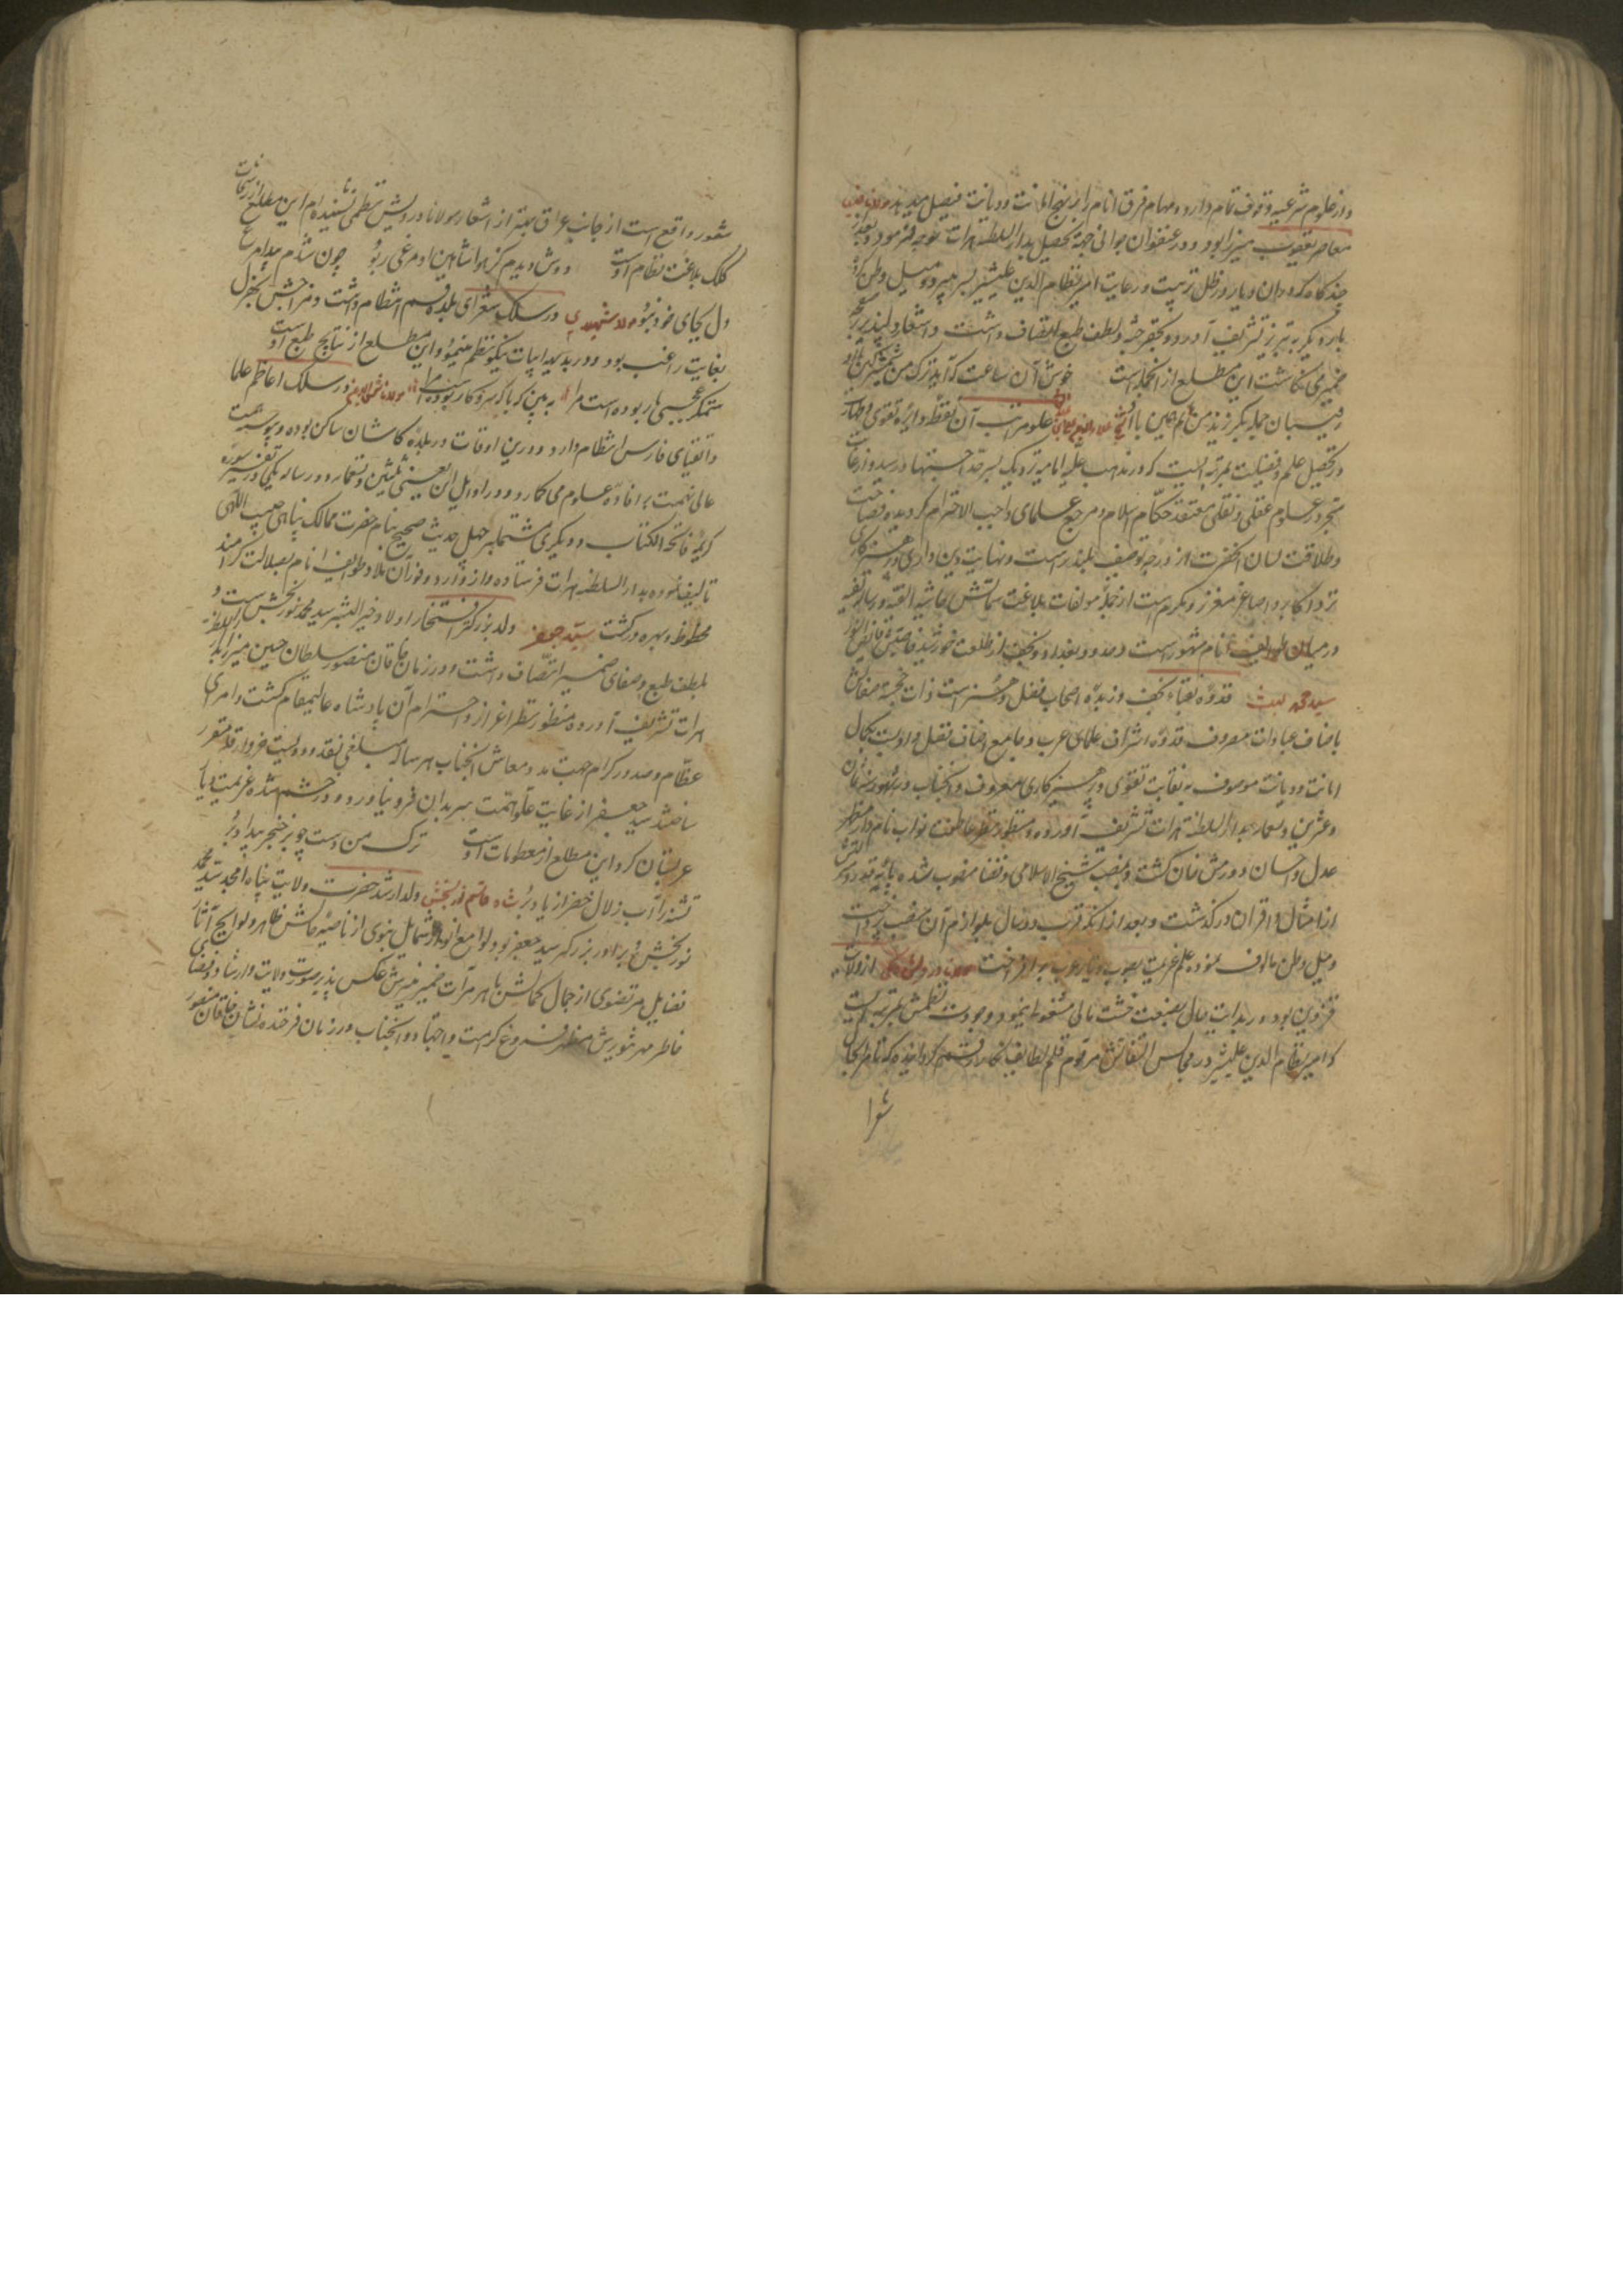 و در علوم شرعیه وقوف تمام دارد و مهام فرق انام را بر نهج امانت و دیانت فیصل میدهد مولانا
معاصر یعقوب میرزا بود و در عنفوان جوانی جهة تحصیل بدار السلطنه هرات توجه فرمود و بعد
چند گاه که در ان دیار در ظل تربیت و رعایت امیر نظام الدین علیشیر بسر میبرد میل وطن کرده
بار دیگر به تبریز تشریف آورد و بلطف طبع اتصاف داشت و اشعار دلپذیر بر
ضمیری نگاشت این مطلع از آنجمله است خوش آن ساعت که آید ترک من شمشیر کین با او
رقیبان جمله بگریزند من مانم همین با او شیخ علو مراتب آن نقطه دایره تقوی و طهارت
در تحصیل علم و فضیلت بمرتبه ایست که در مذهب علیه امامیه نزدیک بسرحد اجتهاد رسیده و از غایت
تبحر در علوم عقلی و نقلی معتقد حکام اسلام و مرجع علمای واجب الاحترام گردیده فصاحت
و طلاقت لسان آنحضرت از درجه توصیف بلندتر است و نهایت دین داری و پرهیزکاری
نزد اکابر و اصاغر معزز و مکرم است از جمله مولفات بلاغت سماتش حاشیه الفیه و رساله
در میان طوایف انام مشهور است و حدود بغداد و نجف از طلعت خورشید خاصیتش فایض النور
سید محمد قدوه نقباء نجف و زبده اصحاب فضل و هنر است ذات خجسته صفاتش
باصناف عبادات معروف قدوه اشراف علمای عرب و جامع اصناف فضل و ادبست بکمال
امانت و دیانت موصوف به نقابت تقوی و پرهیزکاری معروف و آنجناب در شهور سنه ثمان
و عشرین و تسعمایه بدار السلطنه هرات تشریف آورده و منظور نظر عاطفت نواب نامدار
عدل و احسان دورمش خان گشت و بمنصب شیخ الاسلامی و قضا منصوب شده پایه قدر و
از امثال و اقران درگذشت و بعد از آنکه قرب دو سال بلوازم آن منصب پرداخت
و میل وطن مالوف نموده علم عزیمت بصوب دیار عرب برافراخت مولانا درویش از ولایت
قزوین بود و در بدایت حال بصنعت خشت مالی مشغولی مینمود و جودت نظمش بمرتبه ایست
که امیر نظام الدین علیشیر در مجالس النفائس مرقوم قلم لطایف نگار گردانیده که تا نظر بحال
شعرا
شعور واقع است از جانب عراق بهتر از اشعار مولانا درویش نظمی نشنیده ام این مطلع از رشحات
کلک بلاغت نظام اوست دوش دیدم کز هوا شاهین او مرغی ربود چون شدم بیدار مرغ
دل بجای خود نبود مولانا شهیدی در سلک شعرای بلده قم انتظام داشت و مزاجش بهزل
بغایت راغب بود و در بدیهه ابیات نیکو نظم مینمود و این مطلع از نتایج طبع اوست
ستمگر عجبی یار بوده است مرا به بین که با که سر و کار بوده است مرا مولانا در سلک اعاظم علما
و اتقیای فارس انتظام دارد و درین اوقات در بلده کاشان ساکن بوده و پیوسته همت
عالی نهمت بر افاده علوم می گمارد و در اوایل این سنه یعنی ثلثین و تسعمایه دو رساله یکی در تفسیر سوره
کریمه فاتحة الکتاب و دیگری مشتمل بر چهل حدیث صحیح بنام حضرت ممالک پناهی حبیب اللهی
تالیف نموده بدار السلطنه هرات فرستاده
محظوظ و بهره ور گشت سید جعفر ولد بزرگتر افتخار اولاد خیر البشر سید محمد نوربخش است و
بلطف طبع و صفای ضمیر اتصاف داشت و در زمان خاقان منصور سلطان حسین میرزا بدار السلطنه
هرات تشریف آورده منظور نظر اعزاز و احترام آن پادشاه عالیمقام گشت و امرای
عظام و صدور کرام جهت مدد معاش آنجناب هر ساله مبلغی نقد و دویست خروار غله مقرر
ساختند سید جعفر از غایت علو همت سر بدان فرو نیاورد و در خشم شده عزیمت دیار
عربستان کرد این مطلع از منظومات اوست ترک من دست چو بر خنجر بیداد برد
تشنه را آب زلال خضر از یاد برد شاه قاسم نوربخش ولد ارشد حضرت ولایت پناه امجد سید محمد
نوربخش و برادر بزرگ سید جعفر بود لوامع انوار شمایل نبوی از ناصیه حالش ظاهر و لوایح آثار
فضایل مرتضوی از جمال کمالش باهر مرآت ضمیر منیرش عکس پذیر صورت ولایت و ارشاد و فضا
خاطر مهر تنویرش مظهر فروغ کرامت و اجتهاد و آنجناب در زمان فرخنده نشان خاقان منصور